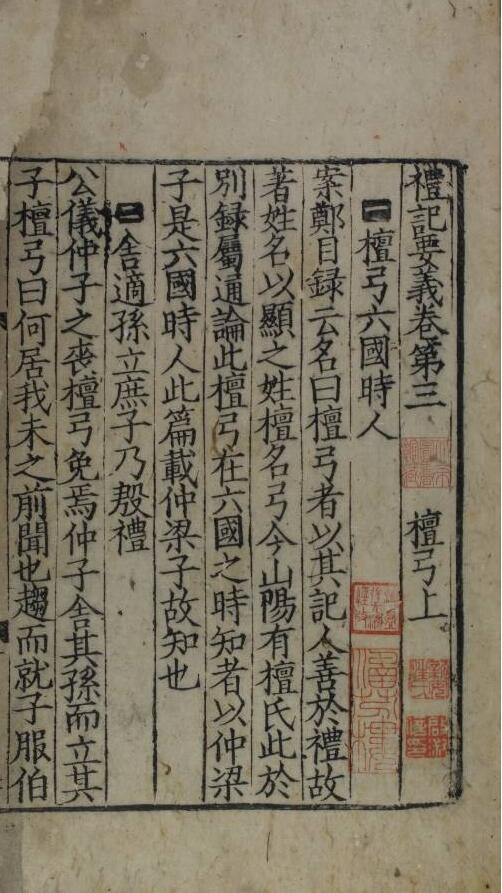 禮記要義卷第三 檀弓上
一檀弓六國時人
案鄭目録云名曰檀弓者以其記人善於禮故
著姓名以顯之姓檀名弓今山陽有檀氏此於
別録屬通論此檀弓在六國之時知者以仲梁
子是六國時人此篇載仲梁子故知也
二舎適孫立庶子乃殷禮
公儀仲子之喪檀弓免焉仲子舍其孫而立其
子檀弓曰何居我未之前聞也趨而就子服伯